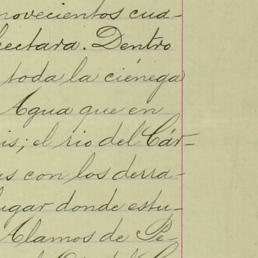 novecientos cua-
hectara. Dentro
toda la ciénega
Agua que en
is; el rio del Cár-
as con los derra-
lugar donde estu-
Alamos de Pe-